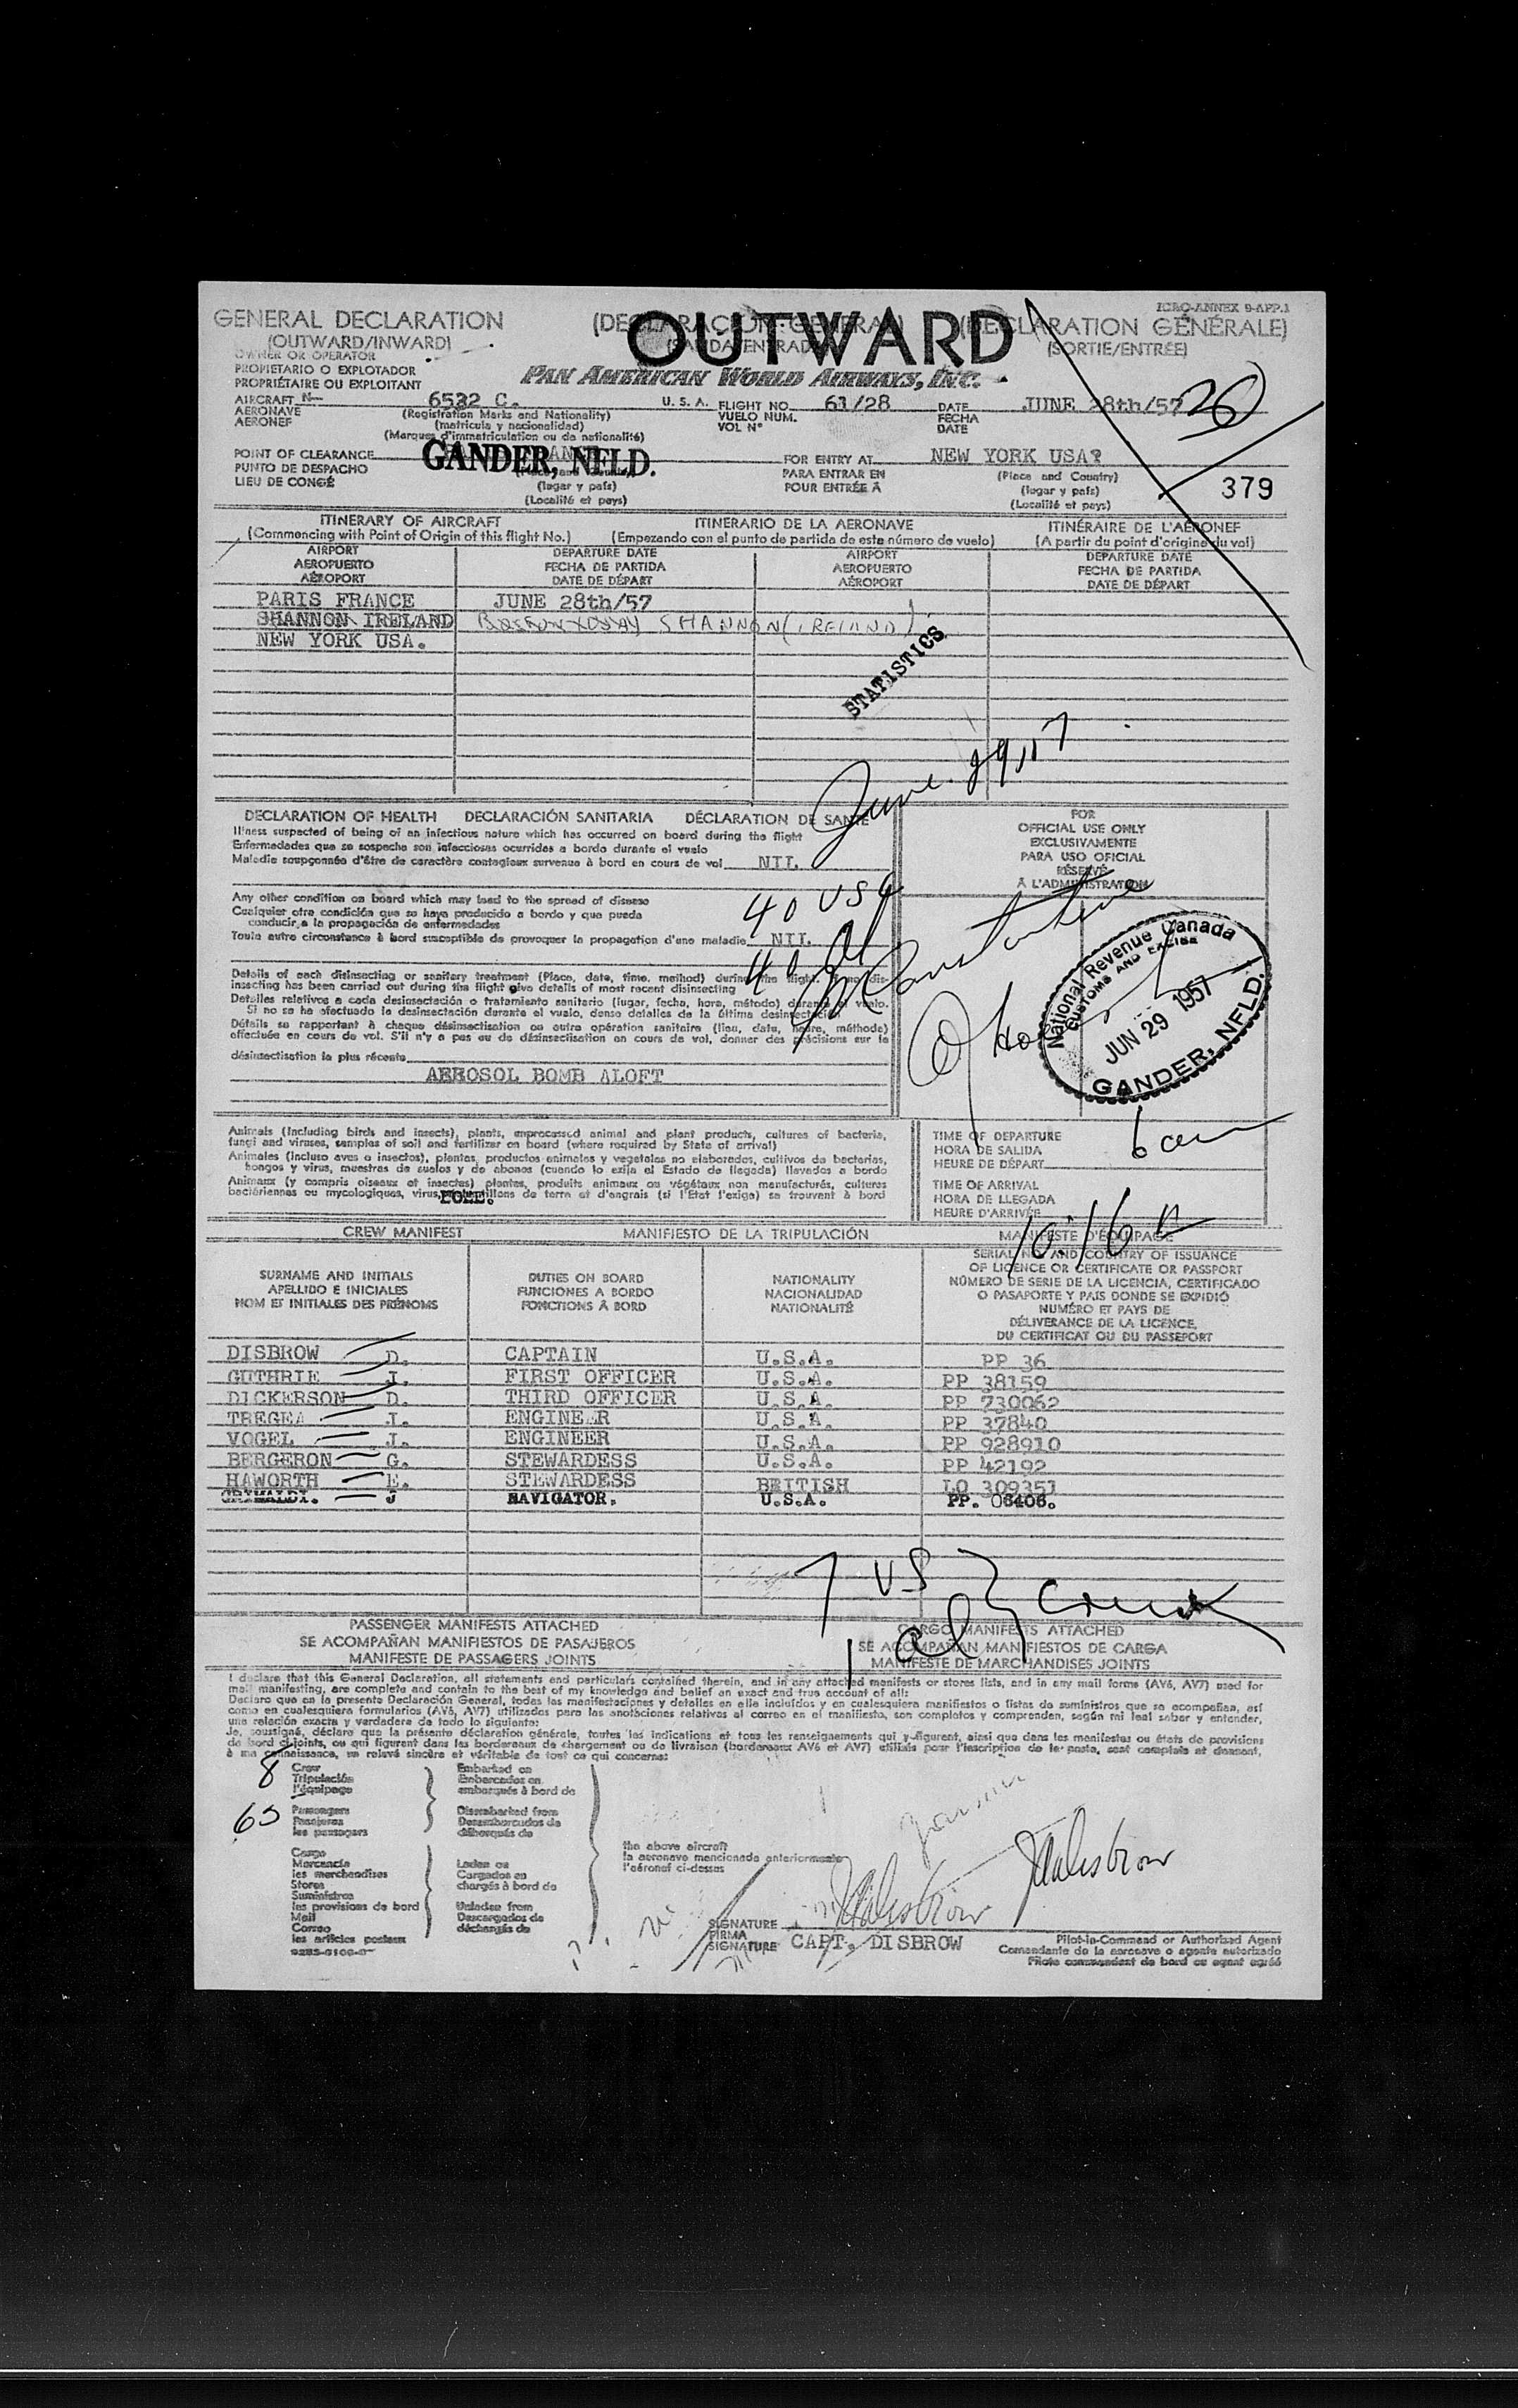 ICAO-ANNEX 9-APP.1
GENERAL DECLARATION (DECLARACIÓN GENERAL) (DÉCLARATION GÉNÉRALE)
OUTWARD
(OUTWARD/INWARD) (SALIDA/ENTRADA) (SORTIE/ENTRÉE)
OWNER OR OPERATOR
PROPIETARIO O EXPLOTADOR
PROPRIÉTAIRE OU EXPLOITANT
PAN AMERICAN WORLD AIRWAYS, INC.
AIRCRAFT N- 6532 C. U. S. A. FLIGHT NO. 61/28 DATE JUNE 28th/57
AERONAVE (Registration Marks and Nationality) VUELO NUM. FECHA
AERONEF (matricula y nacionalidad) VOL N° DATE
(Marques d'immatriculation ou de nationalité)
POINT OF CLEARANCE GANDER, NFLD. FOR ENTRY AT NEW YORK USA?
PUNTO DE DESPACHO (Place and Country) PARA ENTRAR EN (Place and Country)
LIEU DE CONGÉ (lugar y país) POUR ENTRÉE À (lugar y país)
(Localité et pays) (Localité et pays)
379
ITINERARY OF AIRCRAFT ITINERARIO DE LA AERONAVE ITINÉRAIRE DE L'AÉRONEF
(Commencing with Point of Origin of this flight No.) (Empezando con el punto de partida de este número de vuelo) (A partir du point d'origine du vol)
AIRPORT DEPARTURE DATE AIRPORT DEPARTURE DATE
AEROPUERTO FECHA DE PARTIDA AEROPUERTO FECHA DE PARTIDA
AÉROPORT DATE DE DÉPART AÉROPORT DATE DE DÉPART
PARIS FRANCE JUNE 28th/57
SHANNON IRELAND SHANNON (IRELAND)
NEW YORK USA.
STATISTICS
June 29, 57
DECLARATION OF HEALTH DECLARACIÓN SANITARIA DÉCLARATION DE SANTÉ
Illness suspected of being of an infectious nature which has occurred on board during the flight
Enfermedades que se sospecha son infecciosas ocurridas a bordo durante el vuelo
Maladie soupçonnée d'être de caractère contagieux survenue à bord en cours de vol NIL.
FOR
OFFICIAL USE ONLY
EXCLUSIVAMENTE
PARA USO OFICIAL
RÉSERVÉ
À L'ADMINISTRATION
Any other condition on board which may lead to the spread of disease
Cualquier otra condición que se haya producido a bordo y que pueda
conducir a la propagación de enfermedades
Toute autre circonstance à bord susceptible de provoquer la propagation d'une maladie NIL.
40 USC
Details of each disinsecting or sanitary treatment (Place, date, time, method) during the flight. If no dis-
insecting has been carried out during the flight give details of most recent disinsecting
Detalles relativos a cada desinsectación o tratamiento sanitario (lugar, fecha, hora, método) durante el vuelo.
Si no se ha efectuado la desinsectación durante el vuelo, dense detalles de la última desinsectación
Détails se rapportant à chaque désinsectisation ou autre opération sanitaire (lieu, date, heure, méthode)
effectuée en cours de vol. S'il n'y a pas eu de désinsectisation en cours de vol, donner des précisions sur la
désinsectisation la plus récente
AEROSOL BOMB ALOFT
National Revenue Canada
CUSTOMS AND EXCISE
JUN 29 1957
GANDER, NFLD.
Animals (Including birds and insects), plants, unprocessed animal and plant products, cultures of bacteria,
fungi and viruses, samples of soil and fertilizer on board (where required by State of arrival)
Animales (incluso aves o insectos), plantas, productos animales y vegetales no elaborados, cultivos de bacterias,
hongos y virus, muestras de suelos y de abonos (cuando lo exija el Estado de llegada) llevados a bordo
Animaux (y compris oiseaux et insectes) plantes, produits animaux ou végétaux non manufacturés, cultures
bactériennes ou mycologiques, virus, échantillons de terre et d'engrais (si l'Etat l'exige) se trouvant à bord
TIME OF DEPARTURE
HORA DE SALIDA
HEURE DE DÉPART
TIME OF ARRIVAL
HORA DE LLEGADA
HEURE D'ARRIVÉE
10:16
CREW MANIFEST MANIFIESTO DE LA TRIPULACIÓN MANIFESTE D'ÉQUIPAGE
SURNAME AND INITIALS DUTIES ON BOARD NATIONALITY SERIAL NO. AND COUNTRY OF ISSUANCE
APELLIDO E INICIALES FUNCIONES A BORDO NACIONALIDAD OF LICENCE OR CERTIFICATE OR PASSPORT
NOM ET INITIALES DES PRÉNOMS FONCTIONS À BORD NATIONALITÉ NÚMERO DE SERIE DE LA LICENCIA, CERTIFICADO
O PASAPORTE Y PAIS DONDE SE EXPIDIÓ
NUMÉRO ET PAYS DE
DÉLIVERANCE DE LA LICENCE,
DU CERTIFICAT OU DU PASSEPORT
DISBROW D. CAPTAIN U.S.A. PP 36
GUTHRIE J. FIRST OFFICER U.S.A. PP 38159
DICKERSON D. THIRD OFFICER U.S.A. PP 730062
TREGEA I. ENGINEER U.S.A. PP 37840
VOGEL J. ENGINEER U.S.A. PP 928910
BERGERON G. STEWARDESS U.S.A. PP 42192
HAWORTH E. STEWARDESS BRITISH LO 309351
GRIMALDI. J NAVIGATOR. U.S.A. PP. 06406.
7 US
1 al } Crew
PASSENGER MANIFESTS ATTACHED CARGO MANIFESTS ATTACHED
SE ACOMPAÑAN MANIFIESTOS DE PASAJEROS SE ACOMPAÑAN MANIFIESTOS DE CARGA
MANIFESTE DE PASSAGERS JOINTS MANIFESTE DE MARCHANDISES JOINTS
I declare that this General Declaration, all statements and particulars contained therein, and in any attached manifests or stores lists, and in any mail forms (AV6, AV7) used for
mail manifesting, are complete and contain to the best of my knowledge and belief an exact and true account of all:
Declaro que en la presente Declaración General, todas las manifestaciones y detalles en ella incluídos y en cualesquiera manifiestos o listas de suministros que se acompañan, así
como en cualesquiera formularios (AV6, AV7) utilizados para las anotaciones relativas al correo en el manifiesto, son completos y comprenden, según mi leal saber y entender,
una relación exacta y verdadera de todo lo siguiente:
Je, soussigné, déclare que la présente déclaration générale, toutes les indications et tous les renseignements qui y figurent, ainsi que dans les manifestes ou états de provisions
de bord ci-joints, ou qui figurent dans les bordereaux de chargement ou de livraison (bordereaux AV6 et AV7) utilisés pour l'inscription de la poste, sont complets et donnent,
à ma connaissance, un relevé sincère et véritable de tout ce qui concerne:
8 Crew Embarked on
Tripulación Embarcados en
l'équipage embarqués à bord de
65 Passengers Disembarked from
Pasajeros Desembarcados de
les passagers débarqués de
Cargo
Mercancía Laden on
les marchandises Cargados en
Stores chargés à bord de
Suministros
les provisions de bord Unladen from
Mail Descargados de
Correo déchargés de
les articles postaux
the above aircraft
la aeronave mencionada anteriormente
l'aéronef ci-dessus
SIGNATURE
FIRMA
SIGNATURE CAPT. DISBROW
Pilot-in-Command or Authorized Agent
Comandante de la aeronave o agente autorizado
Pilote commandant de bord ou agent agréé